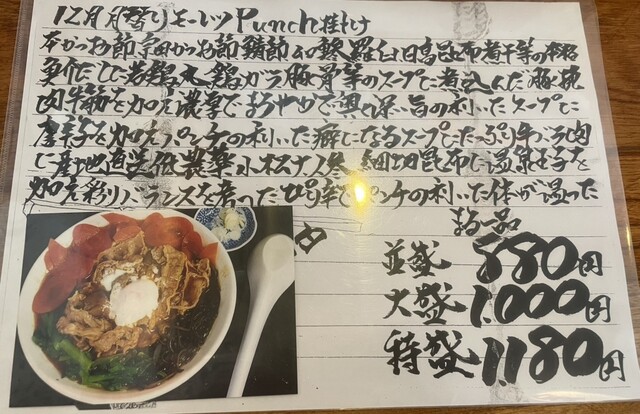 12月月替りモーレツPunch掛け
本かつお節宗田かつお節鯖節ムロ鯵羅臼日高昆布煮干等の本格
魚介だしに若鶏丸鶏ガラ豚骨等のスープに煮込んだ豚挽
肉牛筋を加え濃厚でまろやかで奥深い旨の利いたスープに
唐辛子を加えパンチの利いた癖になるスープにたっぷり牛バラ肉
に産地直送低農薬小松菜人参細切昆布に温泉玉子を
加え彩りバランスを考ったぴり辛でパンチの利いた体が温った
まる一品
並盛 880円
大盛 1.000円
特盛 1.180円